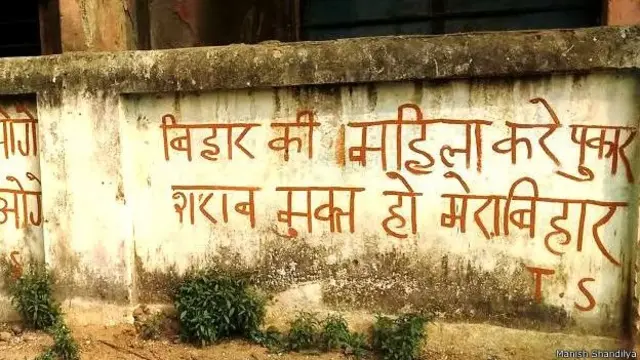 बिहार की महिला करे पुकार
शराब मुक्त हो मेरा बिहार
T.S
ओगे
S
Manish Shandilya